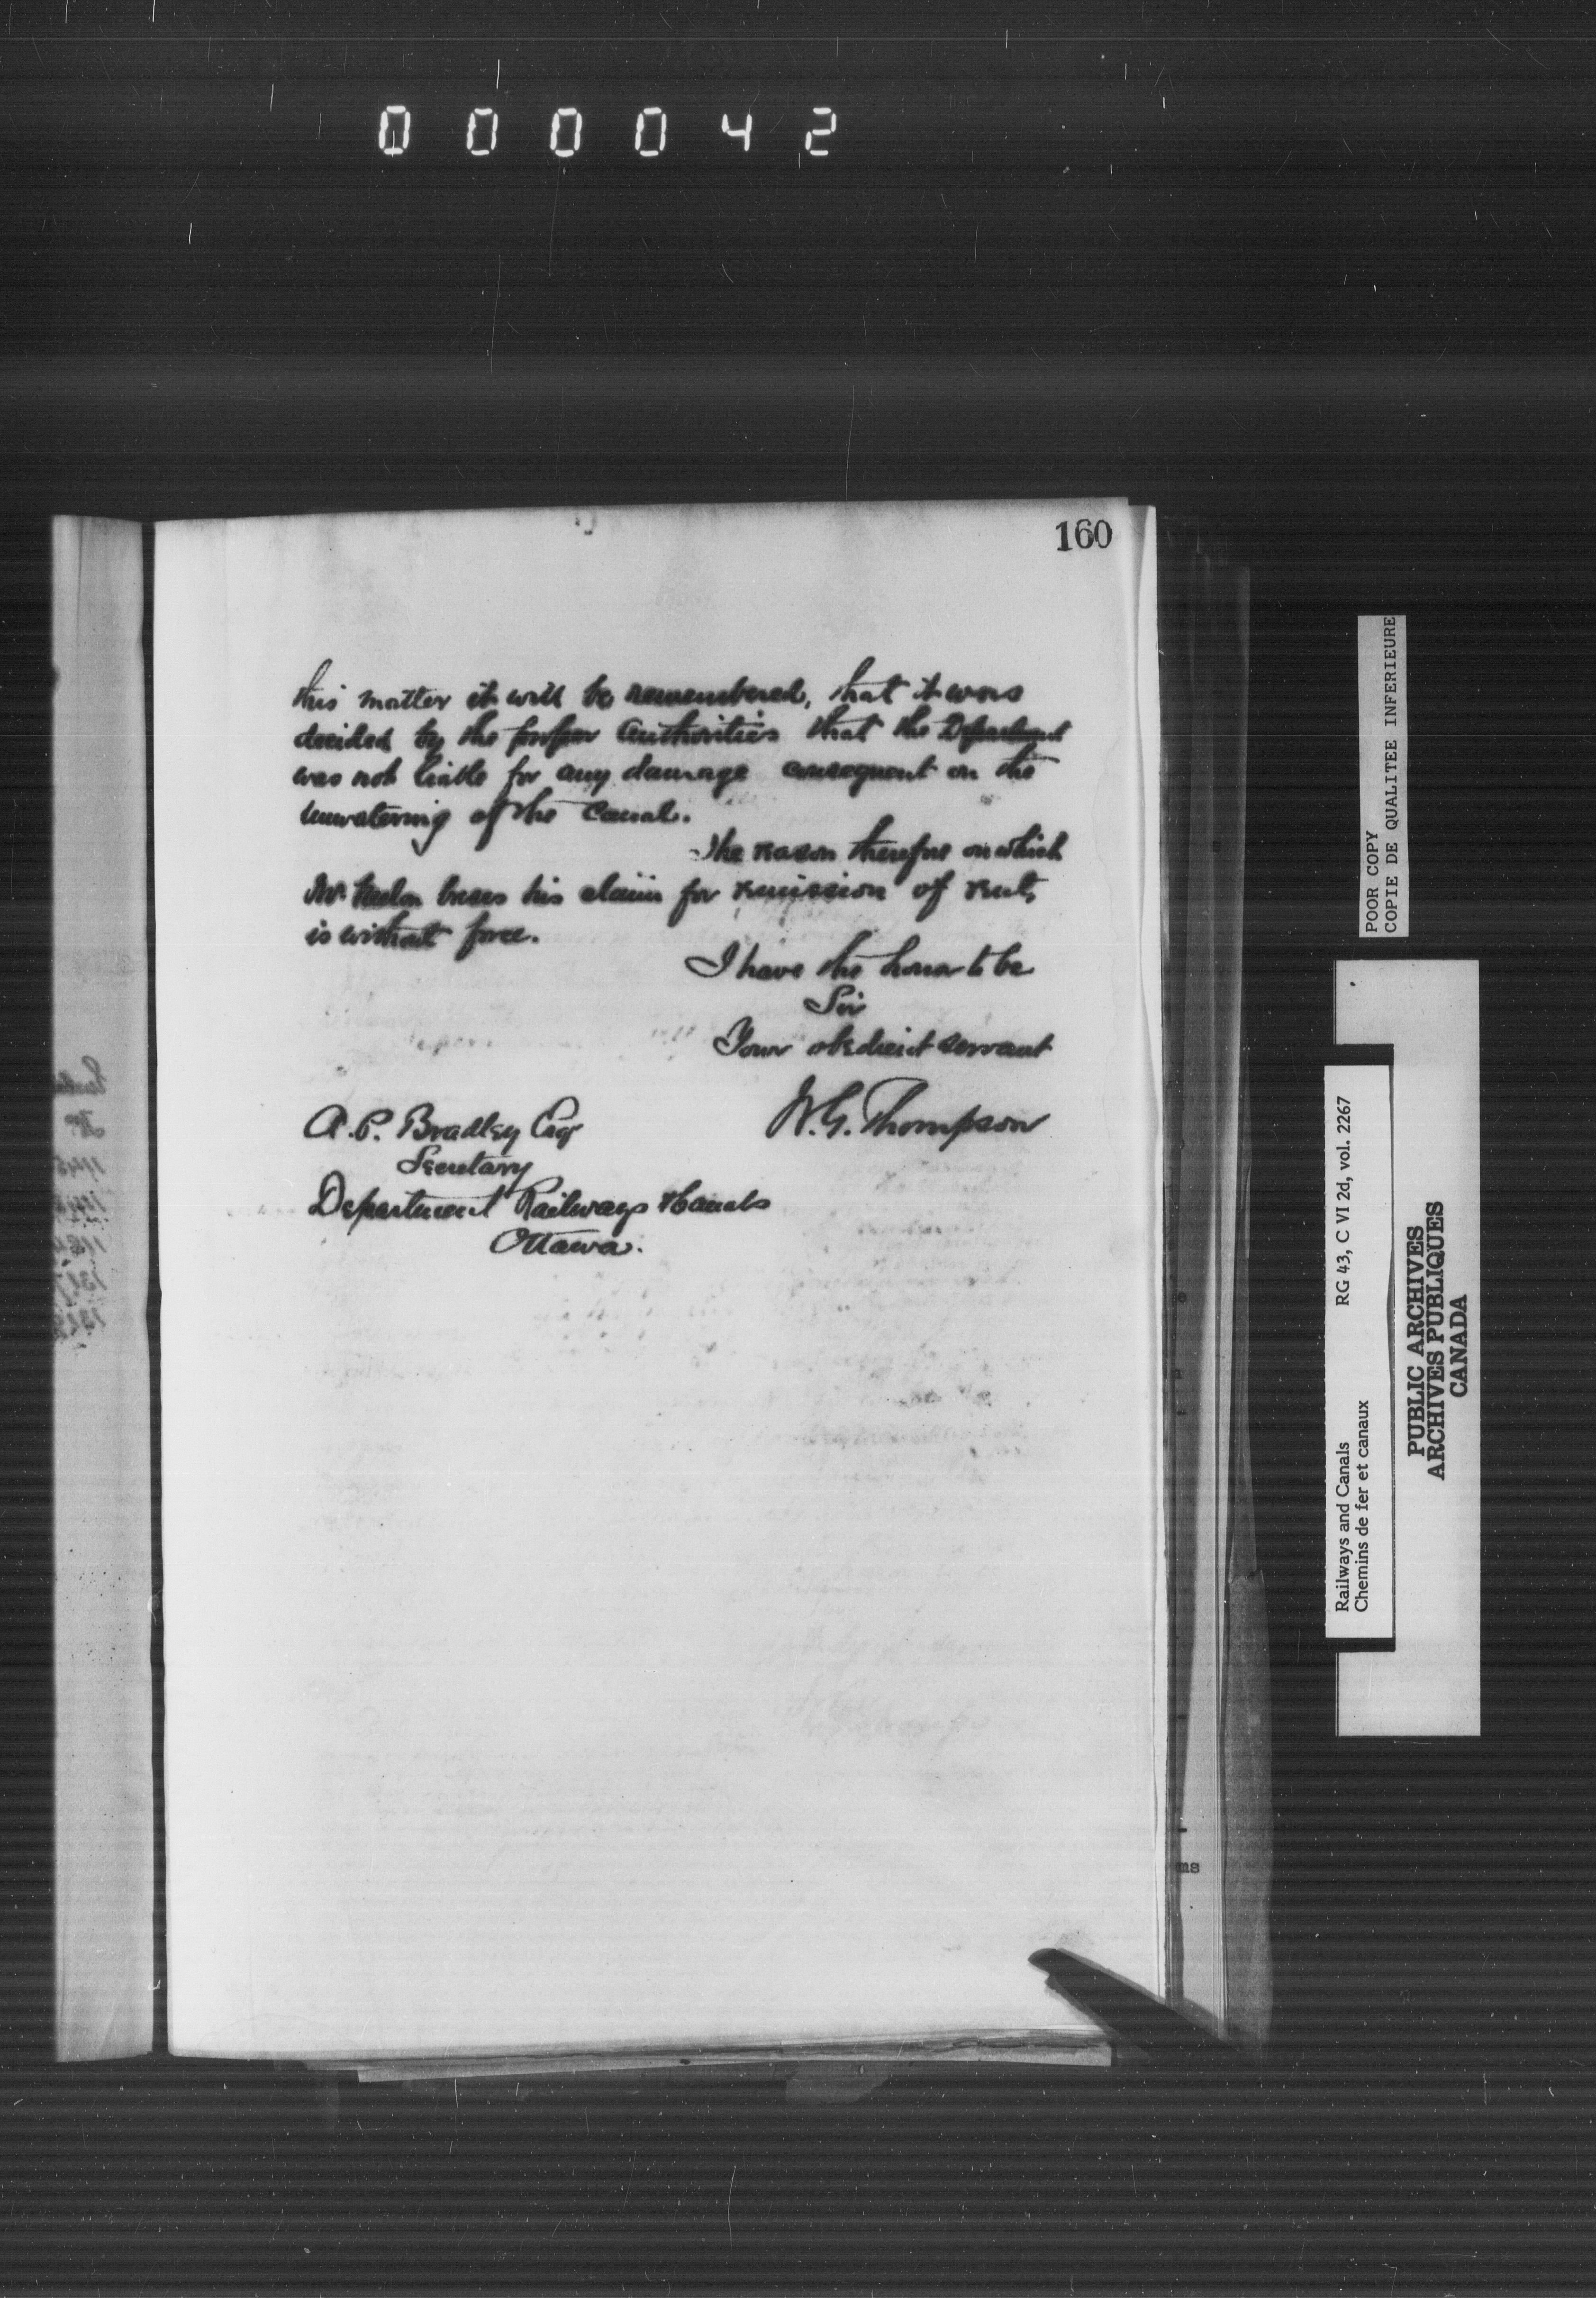 000042
160
this matter it will be remembered, that it was
decided by the proper Authorities that the Department
was not liable for any damage consequent on the
unwatering of the Canal.
The reason therefore on which
Mr. Neelon bases his claim for remission of rent,
is without force.
I have the honor to be
Sir
Your obedient servant
W.G. Thompson
A.P. Bradley Esq
Secretary
Department Railways & Canals
Ottawa.
POOR COPY
COPIE DE QUALITEE INFERIEURE
Railways and Canals RG 43, C VI 2d, vol. 2267
Chemins de fer et canaux
PUBLIC ARCHIVES
ARCHIVES PUBLIQUES
CANADA